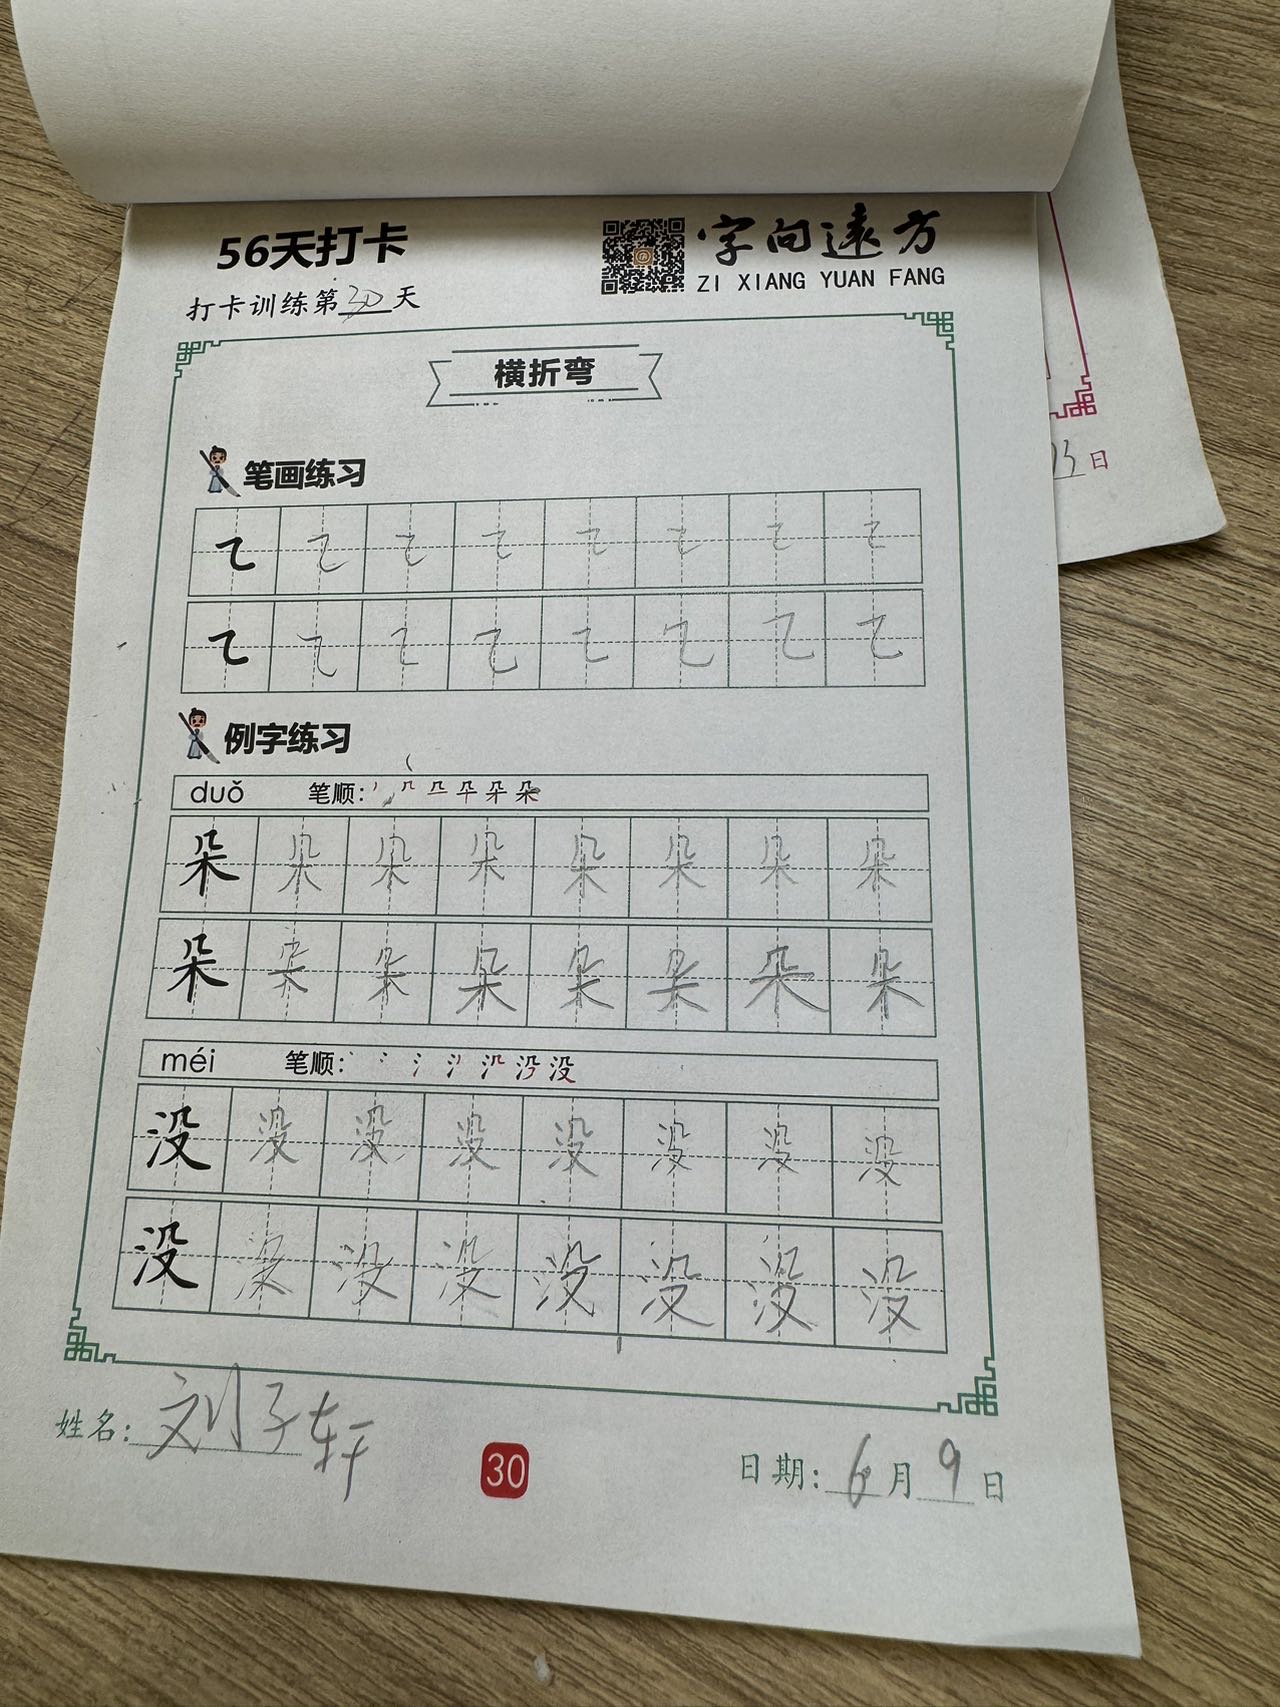 56天打卡
字向遠方
ZI XIANG YUAN FANG
打卡训练第30天
横折弯
笔画练习
例字练习
duǒ 笔顺:
朵 朵 朵 朵 朵 朵 朵 朵
朵 朵 朵 朵 朵 朵 朵 朵
méi 笔顺: 没
没 没 没 没 没 没 没 没
没 没 没 没 没 没 没 没
姓名: 刘子轩
30
日期: 6月9日
日